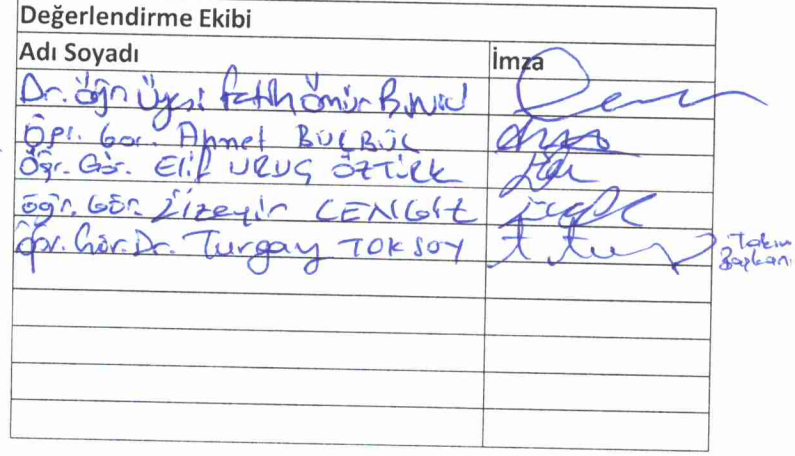 Değerlendirme Ekibi
Adı Soyadı İmza
Dr. öğn Üyesi Fatih Ömür
Öğr. Gör. Ahmet BÜLBÜL
Öğr. Gör. Elif URUÇ ÖZTÜRK
öğr. Gör. CENGİZ
Öğr. Gör. Dr. Turgay TOKSOY
Takım
Başkanı